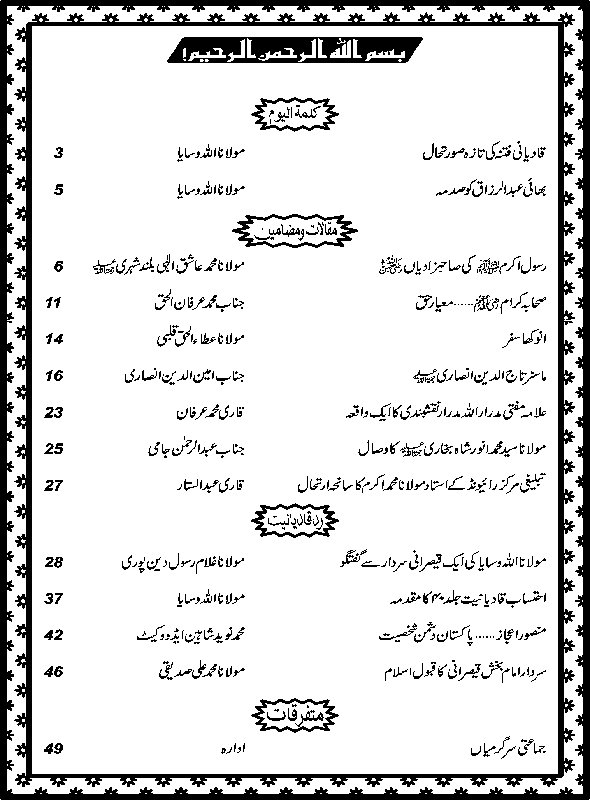 بسم اللہ الرحمن الرحیم!
کلمۃ الیوم
قادیانی فتنہ کی تازہ صورتحال مولانا اللہ وسایا 3
بھائی عبدالرزاق کو صدمہ مولانا اللہ وسایا 5
مقالات و مضامین
رسول اکرم ﷺ کی صاحبزادیاں مولانا محمد عاشق الٰہی بلند شہری 6
صحابہ کرام ...... معیار حق جناب محمد عرفان الحق 11
انوکھا سفر مولانا عطاء الحق قلبی 14
ماسٹر تاج الدین انصاری جناب امین الدین انصاری 16
علامہ مفتی مدرار اللہ مدرار نقشبندی کا ایک واقعہ قاری محمد عرفان 23
مولانا سید محمد انور شاہ بخاری کا وصال جناب عبدالرحمٰن جامی 25
تبلیغی مرکز رائیونڈ کے استاد مولانا محمد اکرم کا سانحہ ارتحال قاری عبدالستار 27
رد قادیانیت
مولانا اللہ وسایا کی ایک قیصرانی سردار سے گفتگو مولانا غلام رسول دین پوری 28
احتساب قادیانیت جلد ۴۰ کا مقدمہ مولانا اللہ وسایا 37
منصور اعجاز ...... پاکستان دشمن شخصیت محمد نوید شاہین ایڈووکیٹ 42
سردار امام بخش قیصرانی کا قبول اسلام مولانا محمد علی صدیقی 46
متفرقات
جماعتی سرگرمیاں ادارہ 49